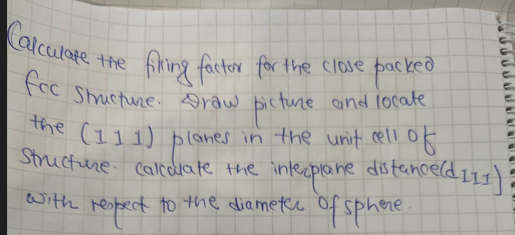 Calculate the filling factor for the close packed
fcc structure. Draw picture and locate
the (111) planes in the unit cell of
structure. calculate the interplane distance(d111)
with respect to the diameter of sphere.